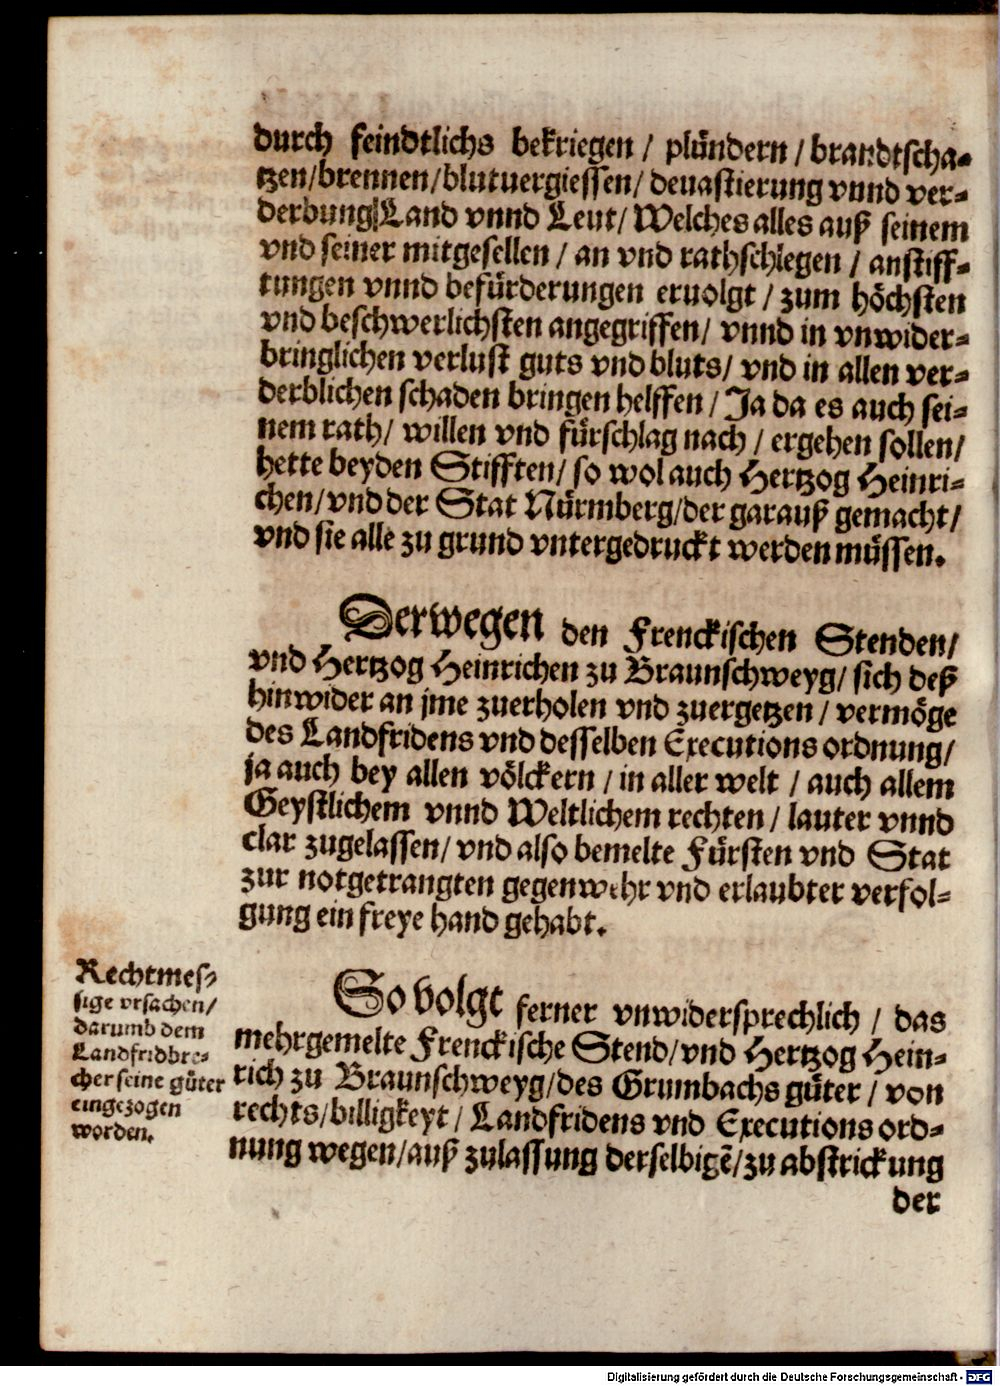 durch feindtlichs bekriegen / plündern / brandtscha-
tzen/brennen/blutuergiessen/ deuastierung vnnd ver-
derbung Land vnnd Leut/ Welches alles auß seinem
vnd seiner mitgesellen / an vnd rathschlegen / anstiff-
tungen vnnd befürderungen eruolgt / zum höchsten
vnd beschwerlichsten angegriffen/ vnnd in vnwider-
bringlichen verlust guts vnd bluts/ vnd in allen ver-
derblichen schaden bringen helffen / Ja da es auch sei-
nem rath/ willen vnd fürschlag nach / ergehen sollen/
hette beyden Stifften/ so wol auch Hertzog Heinri-
chen/ vnd der Stat Nürmberg/der garauß gemacht/
vnd sie alle zu grund vntergedruckt werden müssen.
Derwegen den Frenckischen Stenden/
vnd Hertzog Heinrichen zu Braunschweyg/ sich deß
hinwider an jme zuerholen vnd zuergetzen / vermöge
des Landfridens vnd desselben Executions ordnung/
ja auch bey allen völckern / in aller welt / auch allem
Geystlichem vnnd Weltlichem rechten / lauter vnnd
clar zugelassen/ vnd also bemelte Fürsten vnd Stat
zur notgetrangten gegenwehr vnd erlaubter verfol-
gung ein freye hand gehabt.
Rechtmes-
sige vrsachen/
darumb dem
Landfridbre-
cher seine güter
eingezogen
worden.
So volgt ferner vnwidersprechlich / das
mehrgemelte Frenckische Stend/ vnd Hertzog Hein-
rich zu Braunschweyg/des Grumbachs güter / von
rechts/ billigkeyt / Landfridens vnd Executions ord-
nung wegen/auß zulassung derselbigē/zu abstrickung
der
Digitalisierung gefördert durch die Deutsche Forschungsgemeinschaft - DFG